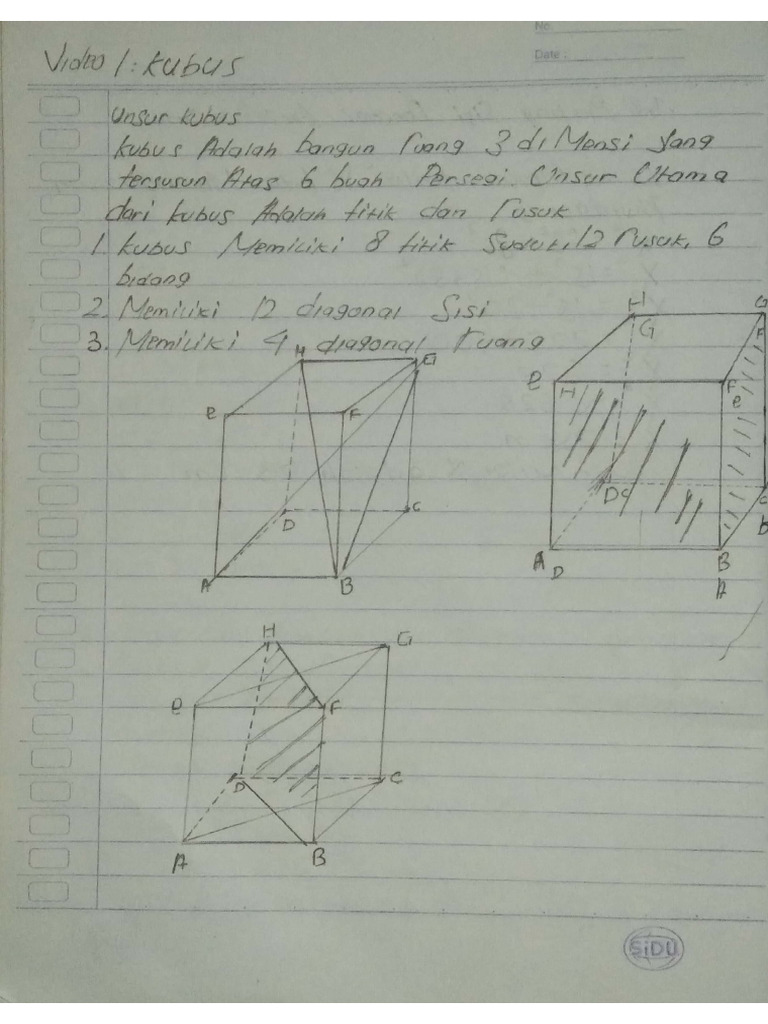 No
Date :
Video 1 : Kubus
Unsur kubus
kubus Adalah bangun ruang 3 diMensi yang
tersusun Atas 6 buah Persegi. Unsur Utama
dari kubus Adalah titik dan rusuk
1. kubus Memiliki 8 titik Sudut, 12 rusuk, 6
bidang
2. Memiliki 12 diagonal Sisi
3. Memiliki 4 diagonal ruang
H G
E F
D C
A B
H G
G F
E F
H E
D C C
A B D
D A
H G
E F
D C
A B
SiDU